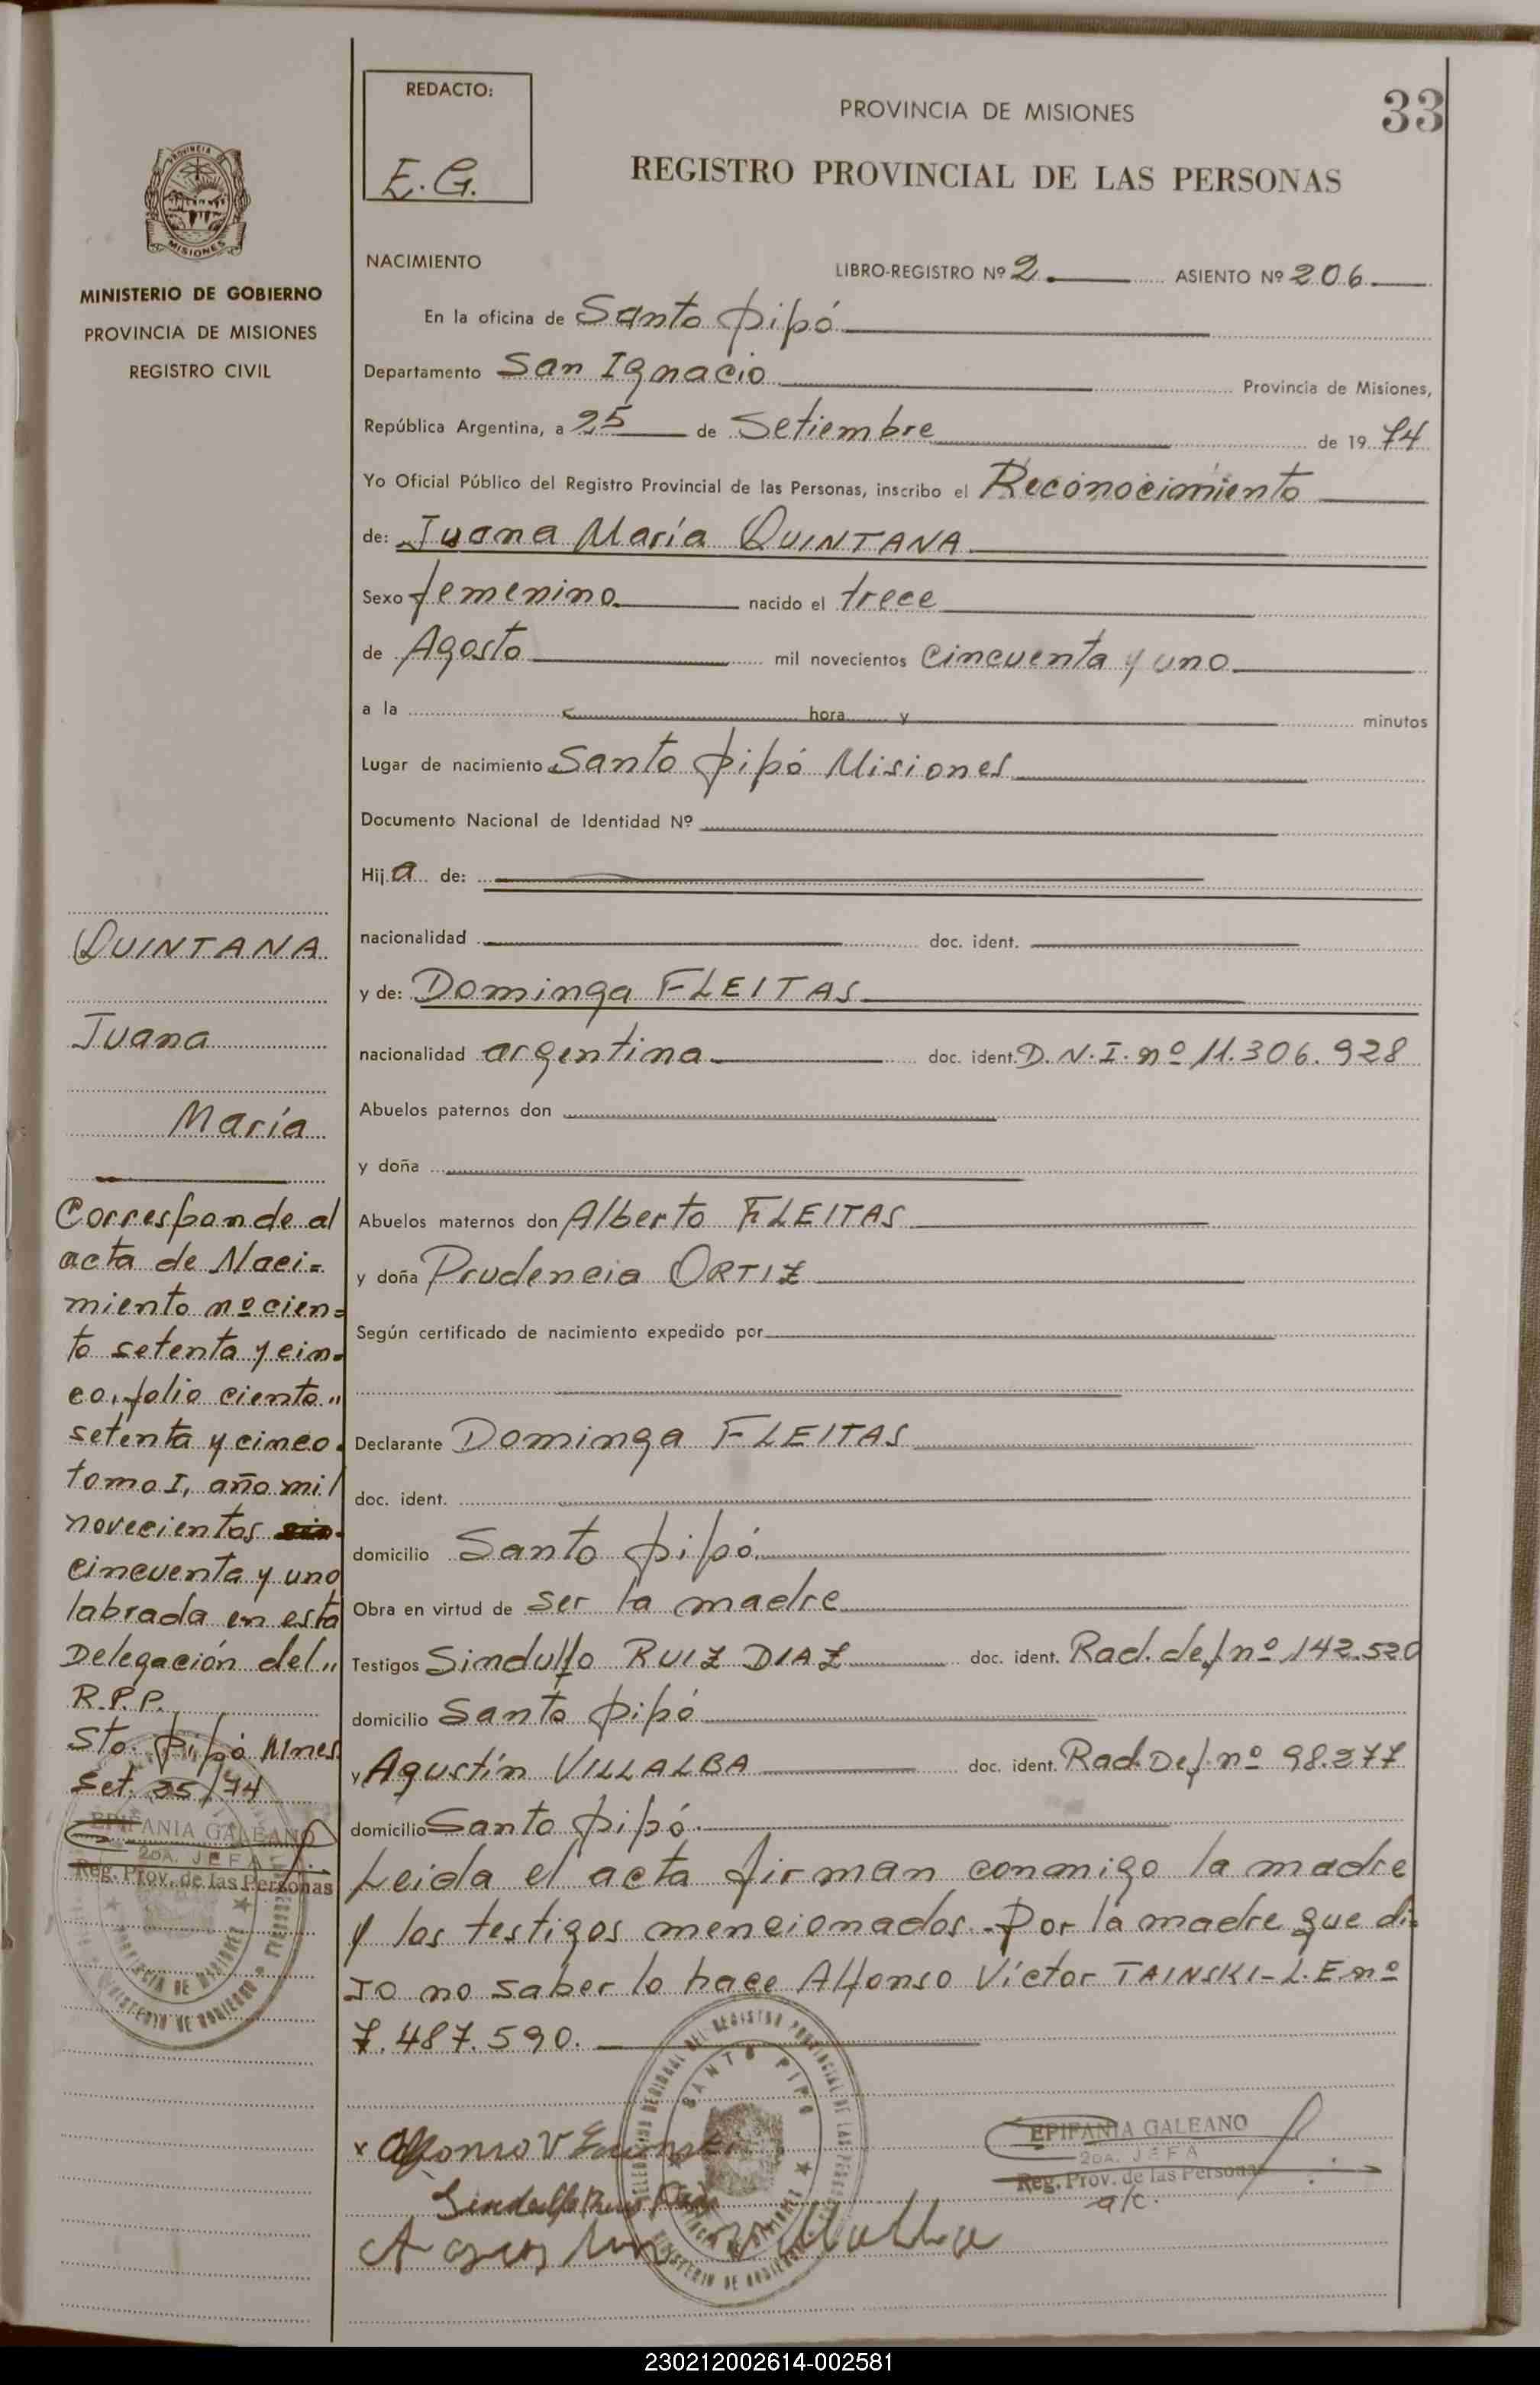 33
REDACTO:
E.G.
PROVINCIA DE MISIONES
REGISTRO PROVINCIAL DE LAS PERSONAS
PROVINCIA DE
MISIONES
MINISTERIO DE GOBIERNO
PROVINCIA DE MISIONES
REGISTRO CIVIL
NACIMIENTO LIBRO-REGISTRO Nº 2 ASIENTO Nº 206
En la oficina de Santo Pipó
Departamento San Ignacio Provincia de Misiones,
República Argentina, a 25 de Setiembre de 19 74
Yo Oficial Público del Registro Provincial de las Personas, inscribo el Reconocimiento
de: Juana María QUINTANA
Sexo femenino nacido el trece
de Agosto mil novecientos cincuenta y uno
a la hora y minutos
Lugar de nacimiento Santo Pipó Misiones
Documento Nacional de Identidad Nº
Hija de:
nacionalidad doc. ident.
y de: Dominga FLEITAS
nacionalidad argentina doc. ident. D.N.I. nº 11.306.928
Abuelos paternos don
y doña
Abuelos maternos don Alberto FLEITAS
y doña Prudencia ORTIZ
Según certificado de nacimiento expedido por
Declarante Dominga FLEITAS
doc. ident.
domicilio Santo Pipó
Obra en virtud de ser la madre
Testigos Sindulfo RUIZ DIAZ doc. ident. Rad. def. nº 142.520
domicilio Santo Pipó
y Agustín VILLALBA doc. ident. Rad. Def. nº 98.277
domicilio Santo Pipó.
Leida el acta firman conmigo la madre
y los testigos mencionados. Por la madre que di-
jo no saber lo hace Alfonso Víctor TAINSKI - L.E nº
7.487.590.
QUINTANA
Juana
María
Corresponde al
acta de Naci=
miento nº cien=
to setenta y cin=
co, folio ciento "
setenta y cinco.
tomo I, año mil
novecientos
cincuenta y uno
labrada en esta
Delegación del "
R.P.P.
Sto. Pipó Mnes.
Set. 25/74
EPIFANIA GALEANO
2DA. JEFA
Reg. Prov. de las Personas
PROVINCIA DE MISIONES
MINISTERIO DE GOBIERNO
x Alfonso V
Sindulfo Ruiz Diaz
Agustin Villalba
DELEGACION REGIONAL DEL REGISTRO PROVINCIAL DE LAS PERSONAS
SANTO PIPO
PROVINCIA DE MISIONES
MINISTERIO DE GOBIERNO
EPIFANIA GALEANO
2DA. JEFA
Reg. Prov. de las Personas
a/c.
230212002614-002581